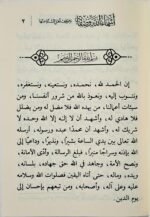 ٢
بسم الله الرحمن الرحيم
إن الحمد لله، نحمده، ونستعينه، ونستغفره،
ونتوب إليه، ونعوذ بالله من شرور أنفسنا، ومن
سيئات أعمالنا، من يهده الله فلا مضل له، ومن يضلل
فلا هادي له، وأشهد أن لا إله إلا الله وحده لا
شريك له، وأشهد أن محمداً عبده ورسوله، أرسله
الله تعالى بين يدي الساعة بشيراً، ونذيراً، وداعياً إلى
الله بإذنه وسراجاً منيراً، فبلغ الرسالة، وأدى الأمانة،
ونصح الأمة، وجاهد في الله حق جهاده، بلسانه،
وماله، حتى أتاه اليقين فصلوات الله وسلامه
عليه وعلى آله، وأصحابه، ومن تبعهم بإحسان إلى
يوم الدين.